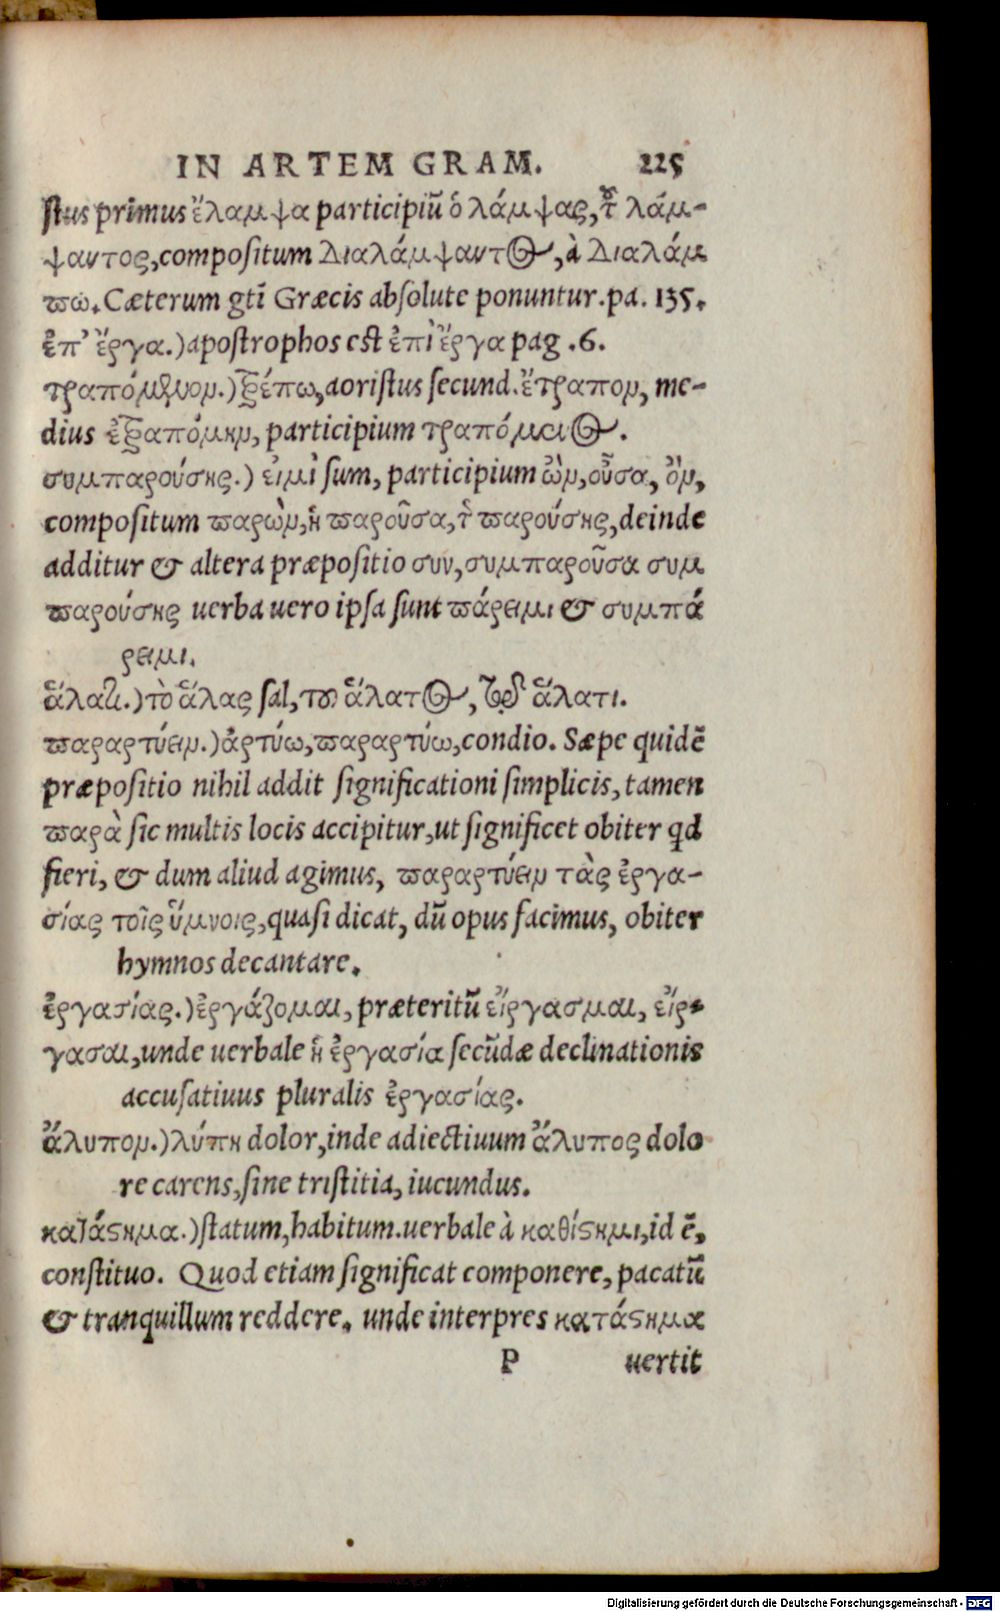 IN ARTEM GRAM. 225
stus primus ἔλαμψα participiũ ὁ λάμψας, τοῦ λάμ-
ψαντος, compositum διαλάμψαντος, à διαλάμ
πω. Cæterum gtĩ Græcis absolute ponuntur. pa. 135.
ἐπ' ἔργα.) apostrophos est ἐπὶ ἔργα pag. 6.
τραπόμενον.) τρέπω, aoristus secund. ἔτραπον, me-
dius ἐτραπόμην, participium τραπόμενος.
συμπαρούσης.) εἰμὶ sum, participium ὢν, οὖσα, ὂν,
compositum παρὼν, ἡ παροῦσα, τῆς παρούσης, deinde
additur & altera præpositio συν, συμπαροῦσα συμ
παρούσης uerba uero ipsa sunt πάρειμι & συμπά
ρειμι.
ἅλατι.) τὸ ἅλας sal, τοῦ ἅλατος, τῷ ἅλατι.
παραρτύειν.) ἀρτύω, παραρτύω, condio. Sæpe quidẽ
præpositio nihil addit significationi simplicis, tamen
παρὰ sic multis locis accipitur, ut significet obiter qd
fieri, & dum aliud agimus, παραρτύειν τὰς ἐργα-
σίας τοῖς ὕμνοις, quasi dicat, dũ opus facimus, obiter
hymnos decantare.
ἐργασίας.) ἐργάζομαι, præteritũ εἴργασμαι, εἴρ-
γασαι, unde uerbale ἡ ἐργασία secũdæ declinationis
accusatiuus pluralis ἐργασίας.
ἄλυπον.) λύπη dolor, inde adiectiuum ἄλυπος dolo
re carens, sine tristitia, iucundus.
κατάστημα.) statum, habitum. uerbale à καθίστημι, id ẽ,
constituo. Quod etiam significat componere, pacatũ
& tranquillum reddere. unde interpres κατάστημα
P uertit
Digitalisierung gefördert durch die Deutsche Forschungsgemeinschaft - DFG